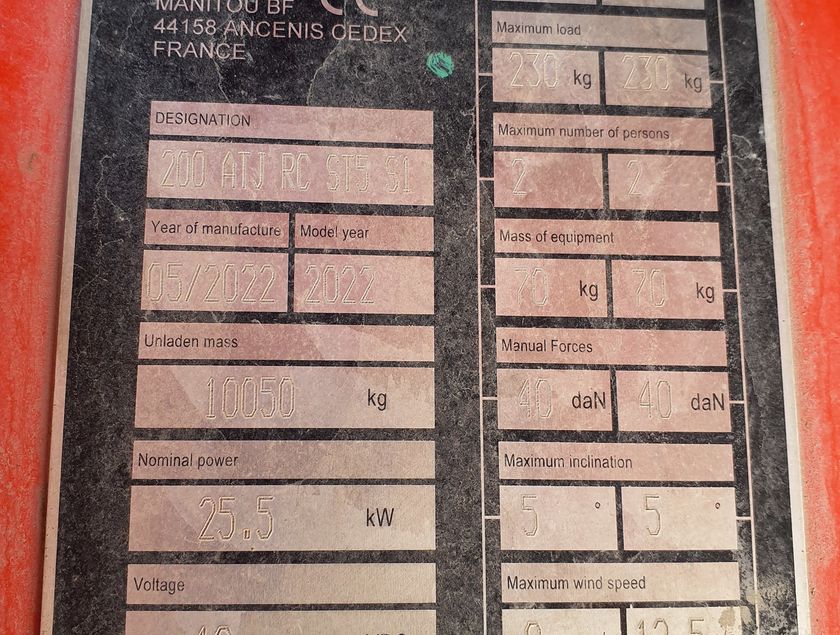 MANITOU BF
44158 ANCENIS CEDEX
FRANCE
DESIGNATION
200 ATJ RC ST5 S1
Year of manufacture Model year
05/2022 2022
Unladen mass
10050 kg
Nominal power
25.5 kW
Voltage
Maximum load
230 kg 230 kg
Maximum number of persons
2 2
Mass of equipment
70 kg 70 kg
Manual Forces
40 daN 40 daN
Maximum inclination
5 ° 5 °
Maximum wind speed
12.5